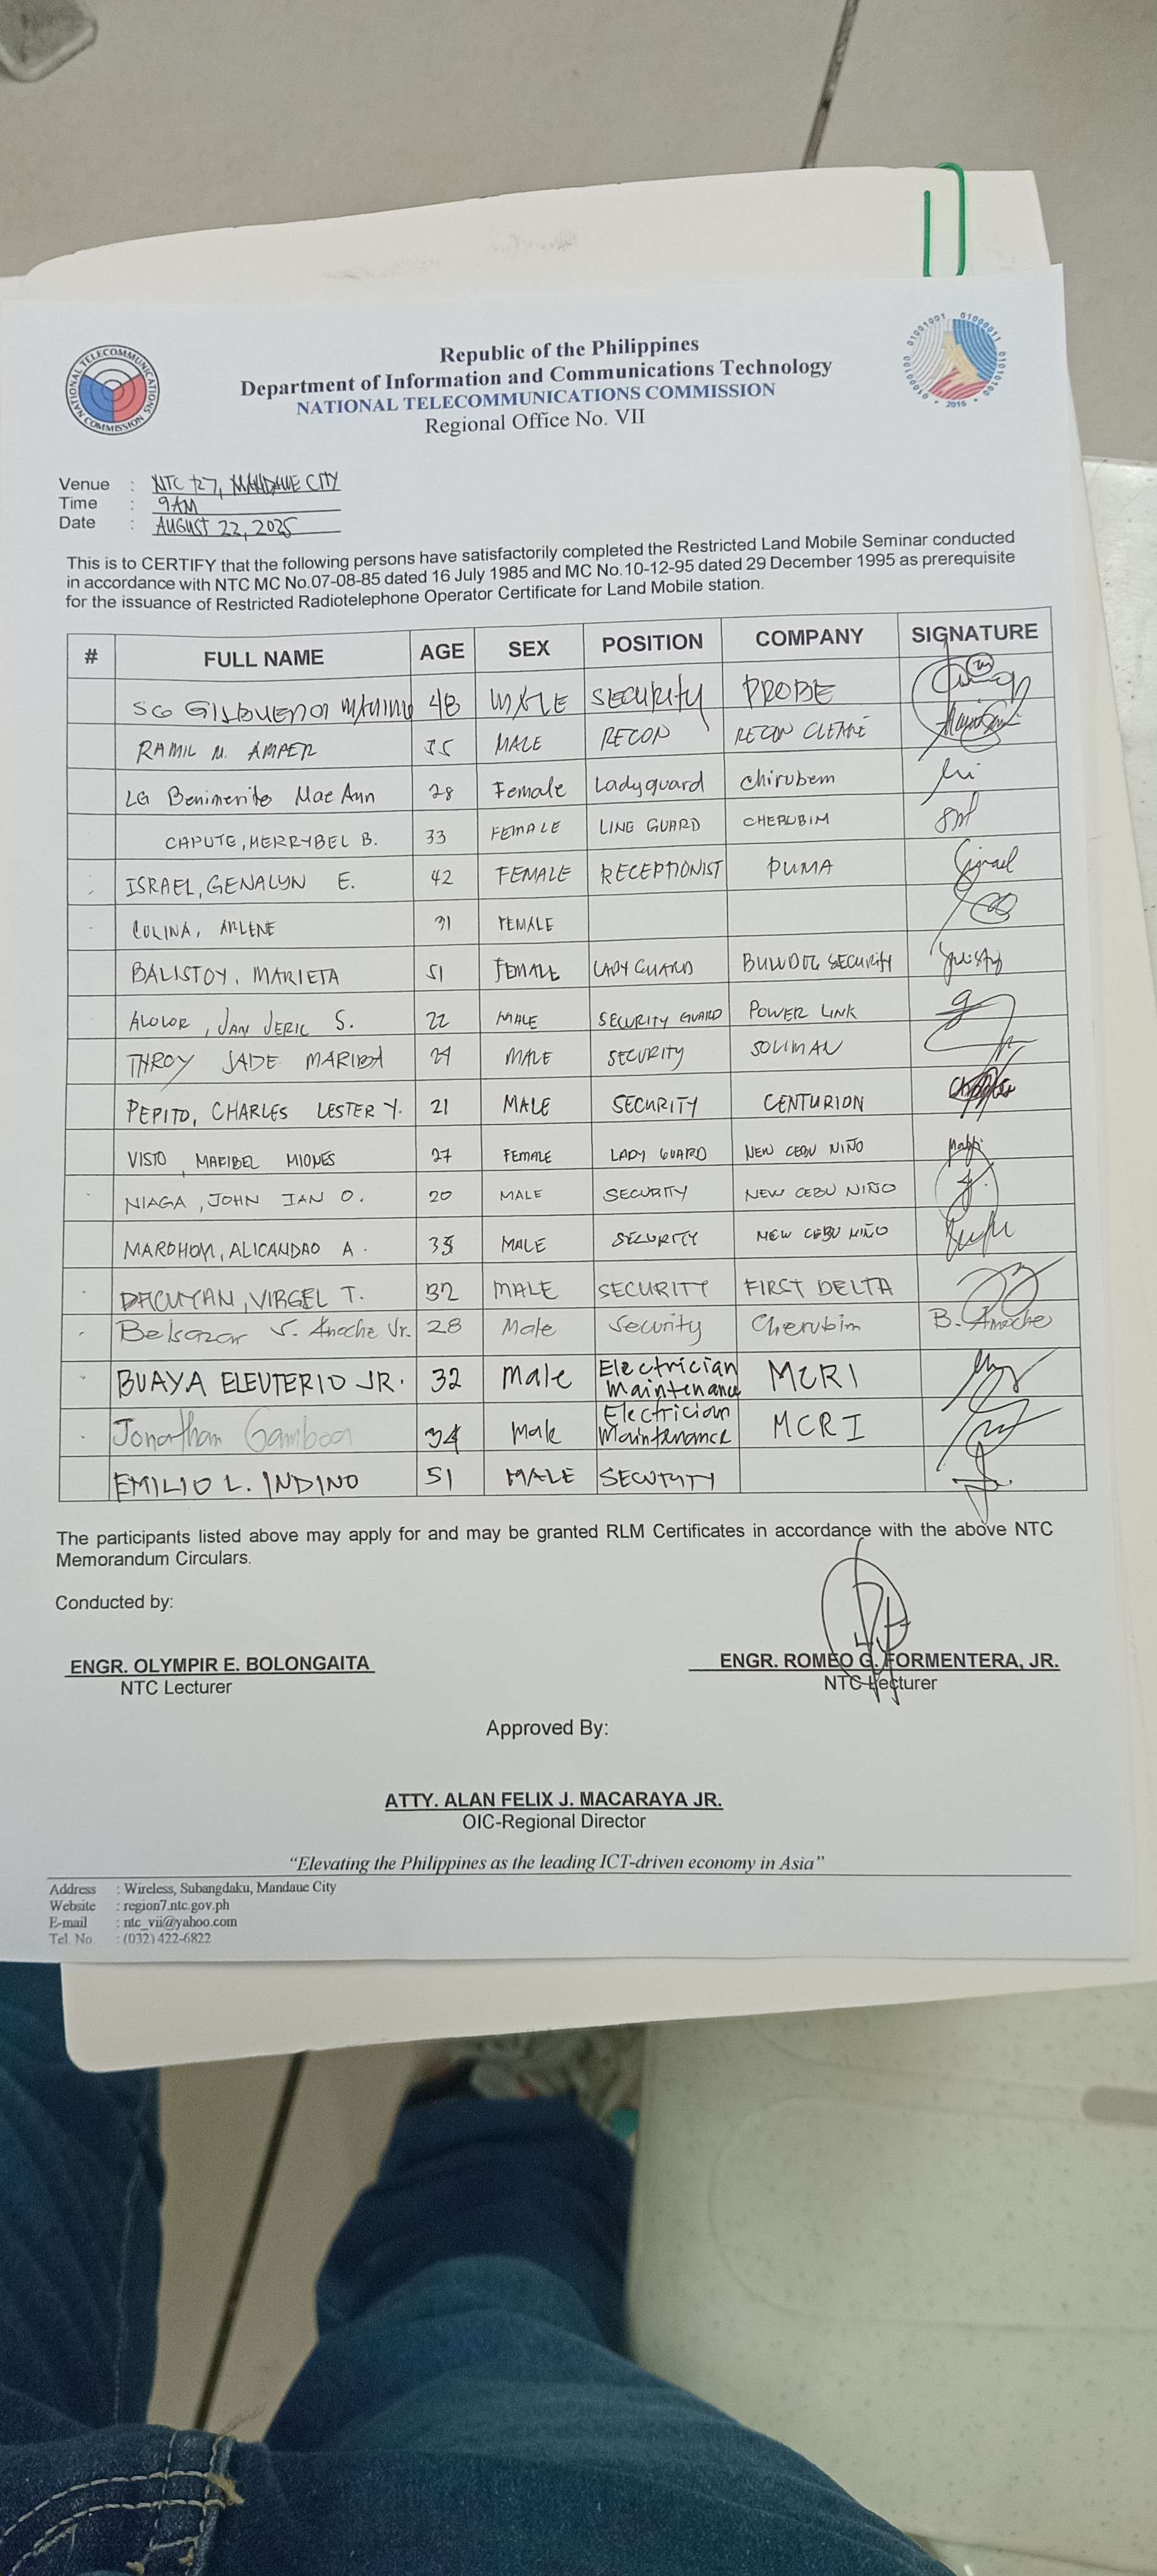 Republic of the Philippines
Department of Information and Communications Technology
NATIONAL TELECOMMUNICATIONS COMMISSION
Regional Office No. VII
NATIONAL TELECOMMUNICATIONS COMMISSION
2016
Venue : NTC R7, MANDAUE CITY
Time : 9AM
Date : AUGUST 22, 2025
This is to CERTIFY that the following persons have satisfactorily completed the Restricted Land Mobile Seminar conducted
in accordance with NTC MC No.07-08-85 dated 16 July 1985 and MC No.10-12-95 dated 29 December 1995 as prerequisite
for the issuance of Restricted Radiotelephone Operator Certificate for Land Mobile station.
# FULL NAME AGE SEX POSITION COMPANY SIGNATURE
SG 48 MALE SECURITY PROBE
RAMIL M. AMPER 35 MALE RECON RECON
LG Benimerito Mae Ann 28 Female Lady guard Chirubem
CAPUTE, MERRYBEL B. 33 FEMALE LING GUARD CHERUBIM
ISRAEL, GENALYN E. 42 FEMALE RECEPTIONIST PUMA
CULINA, ARLENE 31 FEMALE
BALISTOY, MARIETA 51 FEMALE LADY GUARD SECURITY
JAN JERIC S. 22 MALE SECURITY GUARD POWER LINK
THROY JADE 29 MALE SECURITY SOLIMAN
PEPITO, CHARLES LESTER Y. 21 MALE SECURITY CENTURION
VISTO, MARIBEL MIONES 27 FEMALE LADY GUARD NEW CEBU NIÑO
NIAGA, JOHN IAN O. 20 MALE SECURITY NEW CEBU NIÑO
MARDHOM, ALICANDAO A. 35 MALE SECURITY NEW CEBU NIÑO
DACUYAN, VIRGEL T. 32 MALE SECURITY FIRST DELTA
Belsazar S. Anoche Jr. 28 Male Security Cherubim B. Anoche
BUAYA ELEUTERIO JR. 32 Male Electrician Maintenance MCRI
Jonathan Gamboa 34 Male Electrician Maintenance MCRI
EMILIO L. INDINO 51 MALE SECURITY
The participants listed above may apply for and may be granted RLM Certificates in accordance with the above NTC
Memorandum Circulars.
Conducted by:
ENGR. OLYMPIR E. BOLONGAITA ENGR. ROMEO G. FORMENTERA, JR.
NTC Lecturer NTC Lecturer
Approved By:
ATTY. ALAN FELIX J. MACARAYA JR.
OIC-Regional Director
“Elevating the Philippines as the leading ICT-driven economy in Asia”
Address : Wireless, Subangdaku, Mandaue City
Website : region7.ntc.gov.ph
E-mail : ntc_vii@yahoo.com
Tel. No. : (032) 422-6822